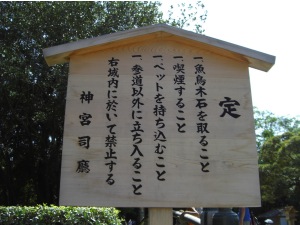 定
一魚鳥木石を取ること
一喫煙すること
一ペットを持ち込むこと
一参道以外に立ち入ること
右域内に於いて禁止する
神宮司廳